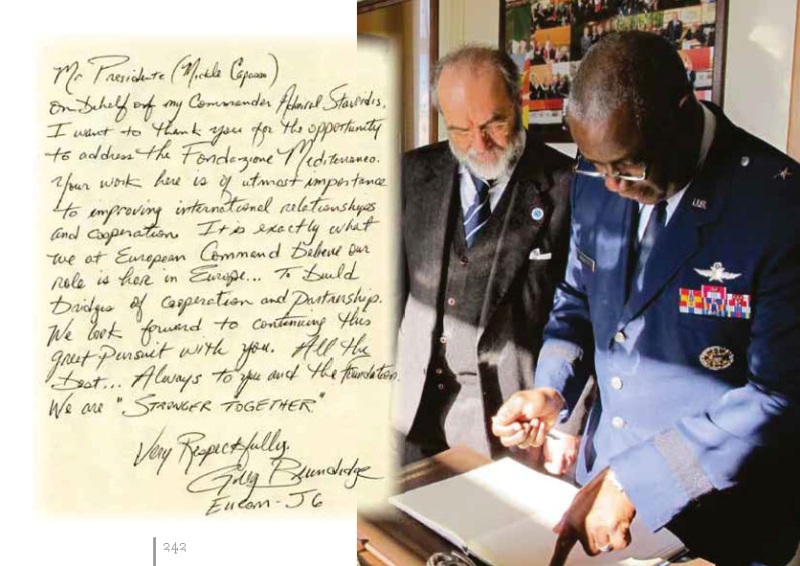 Mr Presidente (Michele Capasso)
on behalf of my Commander Admiral Stavridis,
I want to thank you for the opportunity
to address the Fondazione Mediterraneo.
Your work here is of utmost importance
to improving international relationships
and cooperation. It is exactly what
we at European Command Believe our
role is here in Europe... To Build
Bridges of Cooperation and Partnership.
We look forward to continuing this
great Pursuit with you. All the
Best... Always to you and the foundation.
We are "STRONGER TOGETHER"
Very Respectfully,
Greg Brundidge
Eucom-J6
242
U.S.